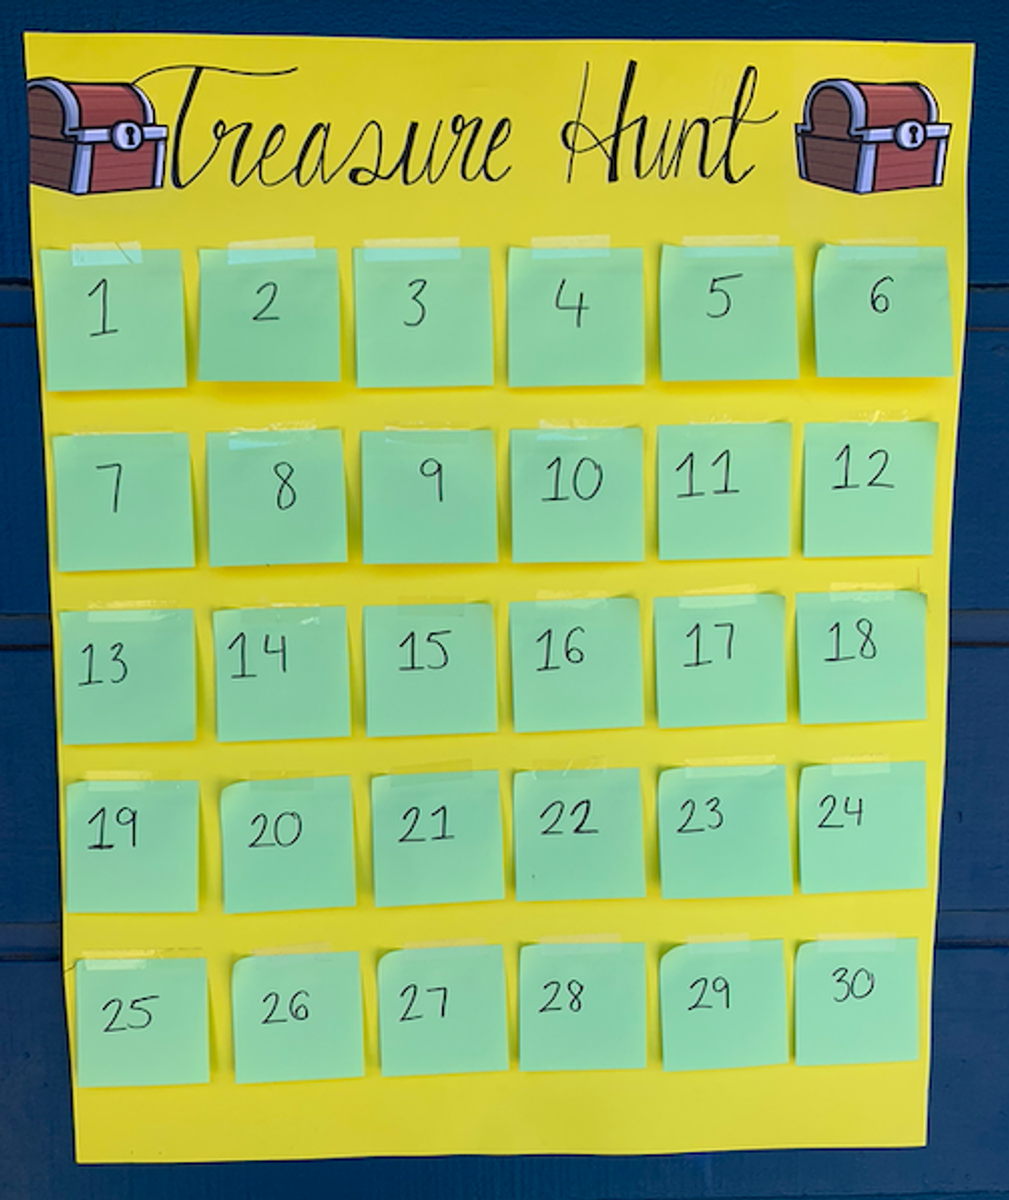 Treasure Hunt
1 2 3 4 5 6
7 8 9 10 11 12
13 14 15 16 17 18
19 20 21 22 23 24
25 26 27 28 29 30